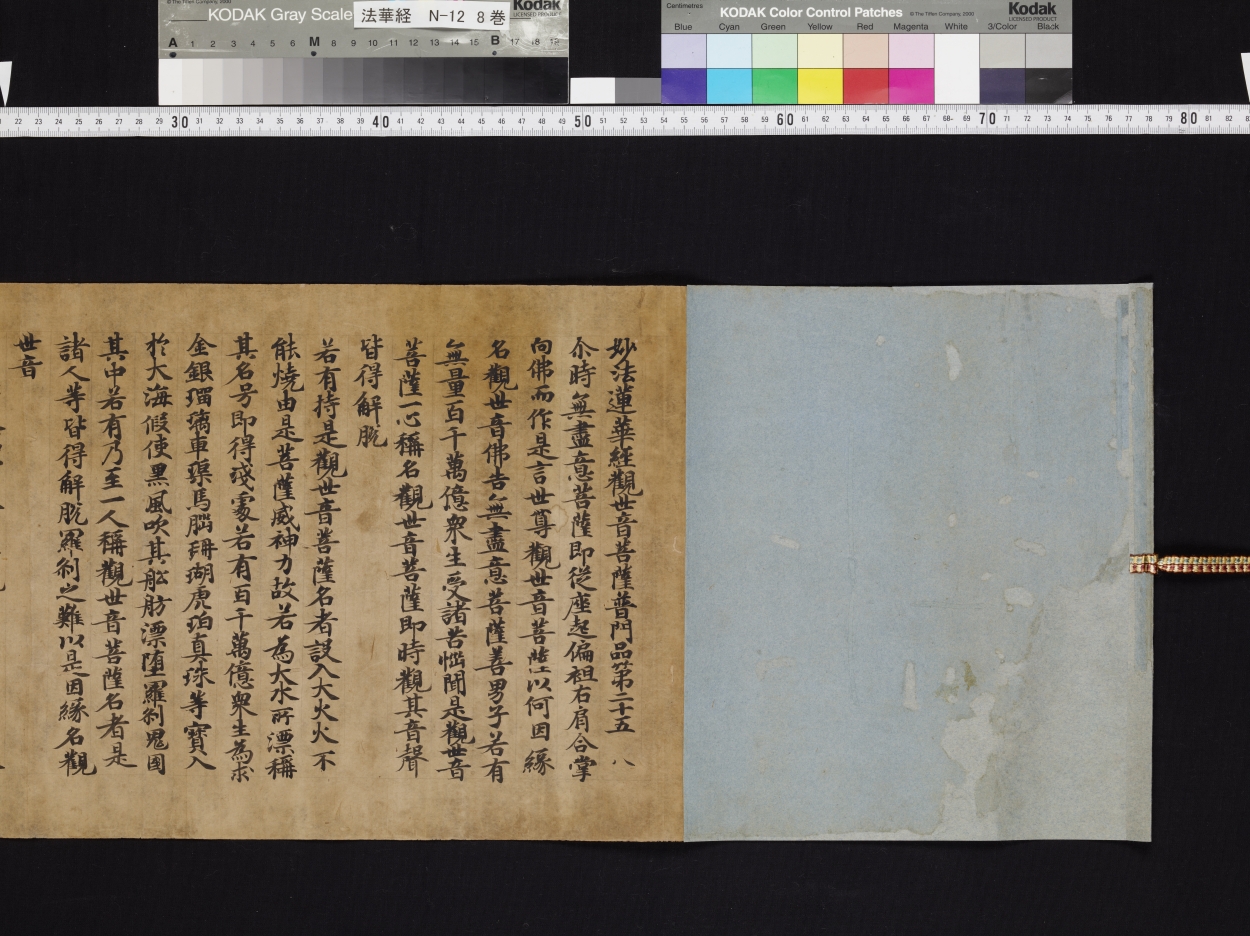 © The Tiffen Company, 2000
KODAK Gray Scale
Kodak
LICENSED PRODUCT
法華経 N-12 8巻
A 1 2 3 4 5 6 M 8 9 10 11 12 13 14 15 B 17 18 19
Centimetres
KODAK Color Control Patches © The Tiffen Company, 2000
Kodak
LICENSED PRODUCT
Blue Cyan Green Yellow Red Magenta White 3/Color Black
22 23 24 25 26 27 28 29 30 31 32 33 34 35 36 37 38 39 40 41 42 43 44 45 46 47 48 49 50 51 52 53 54 55 56 57 58 59 60 61 62 63 64 65 66 67 68 69 70 71 72 73 74 75 76 77 78 79 80 81 82
妙法蓮華經觀世音菩薩普門品第二十五 八
尒時無盡意菩薩即從座起偏袒右肩合掌
向佛而作是言世尊觀世音菩薩以何因緣
名觀世音佛告無盡意菩薩善男子若有
無量百千萬億衆生受諸苦惱聞是觀世音
菩薩一心稱名觀世音菩薩即時觀其音聲
皆得解脫
若有持是觀世音菩薩名者設入大火火不
能燒由是菩薩威神力故若為大水所漂稱
其名号即得淺處若有百千萬億衆生為求
金銀瑠璃車璖馬腦珊瑚虎珀真珠等寶入
於大海假使黑風吹其舩舫漂堕羅刹鬼國
其中若有乃至一人稱觀世音菩薩名者是
諸人等皆得解脫羅刹之難以是因緣名觀
世音